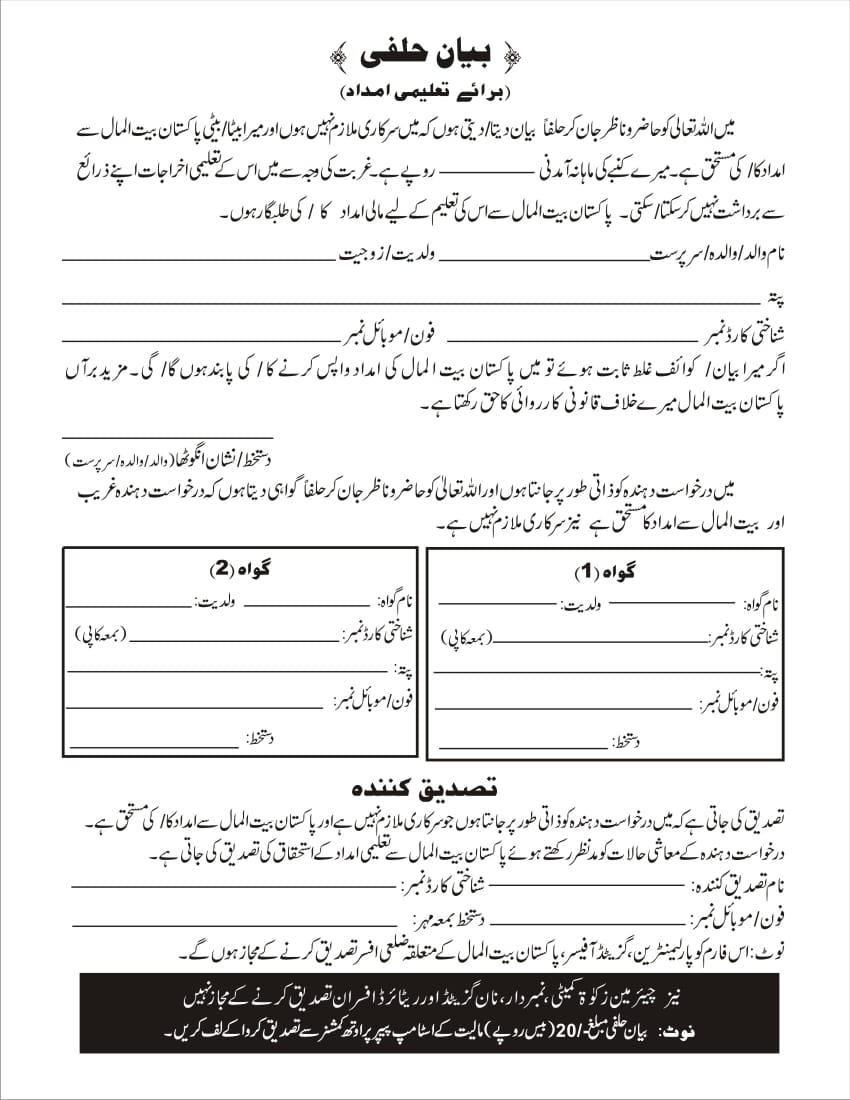 بیان حلفی
(برائے تعلیمی امداد)
میں اللہ تعالی کو حاضر و ناظر جان کر حلفاً بیان دیتا/دیتی ہوں کہ میں سرکاری ملازم نہیں ہوں اور میرا بیٹا/بیٹی پاکستان بیت المال سے
امداد کا/ کی مستحق ہے۔ میرے کنبے کی ماہانہ آمدنی ________ روپے ہے۔ غربت کی وجہ سے میں اس کے تعلیمی اخراجات اپنے ذرائع
سے برداشت نہیں کر سکتا/سکتی۔ پاکستان بیت المال سے اس کی تعلیم کے لیے مالی امداد کا / کی طلبگار ہوں۔
نام والد/والدہ/سرپرست ________ ولدیت/زوجیت ________
پتہ ________
شناختی کارڈ نمبر ________ فون/موبائل نمبر ________
اگر میرا بیان/ کوائف غلط ثابت ہوئے تو میں پاکستان بیت المال کی امداد واپس کرنے کا/ کی پابند ہوں گا/ گی۔ مزید برآں
پاکستان بیت المال میرے خلاف قانونی کارروائی کا حق رکھتا ہے۔
دستخط/نشان انگوٹھا (والد/والدہ/سرپرست)
میں درخواست دہندہ کو ذاتی طور پر جانتا ہوں اور اللہ تعالیٰ کو حاضر و ناظر جان کر حلفاً گواہی دیتا ہوں کہ درخواست دہندہ غریب
اور بیت المال سے امداد کا مستحق ہے نیز سرکاری ملازم نہیں ہے۔
گواہ (1)
نام گواہ: ________ ولدیت: ________
شناختی کارڈ نمبر: ________ (بمعہ کاپی)
پتہ: ________
فون/موبائل نمبر: ________
دستخط: ________
گواہ (2)
نام گواہ: ________ ولدیت: ________
شناختی کارڈ نمبر: ________ (بمعہ کاپی)
پتہ: ________
فون/موبائل نمبر: ________
دستخط: ________
تصدیق کنندہ
تصدیق کی جاتی ہے کہ میں درخواست دہندہ کو ذاتی طور پر جانتا ہوں جو سرکاری ملازم نہیں ہے اور پاکستان بیت المال سے امداد کا/ کی مستحق ہے۔
درخواست دہندہ کے معاشی حالات کو مدنظر رکھتے ہوئے پاکستان بیت المال سے تعلیمی امداد کے استحقاق کی تصدیق کی جاتی ہے۔
نام تصدیق کنندہ: ________ شناختی کارڈ نمبر: ________
فون/موبائل نمبر: ________ دستخط بمعہ مہر: ________
نوٹ: اس فارم کو پارلیمنٹرین، گزیٹڈ آفیسر، پاکستان بیت المال کے متعلقہ ضلعی افسر تصدیق کرنے کے مجاز ہوں گے۔
نیز چیئرمین زکوۃ کمیٹی، نمبردار، نان گزیٹڈ اور ریٹائرڈ افسران تصدیق کرنے کے مجاز نہیں
نوٹ: بیان حلفی مبلغ -/20 (بیس روپے) مالیت کے اسٹامپ پیپر پر اوتھ کمشنر سے تصدیق کروا کے لف کریں۔